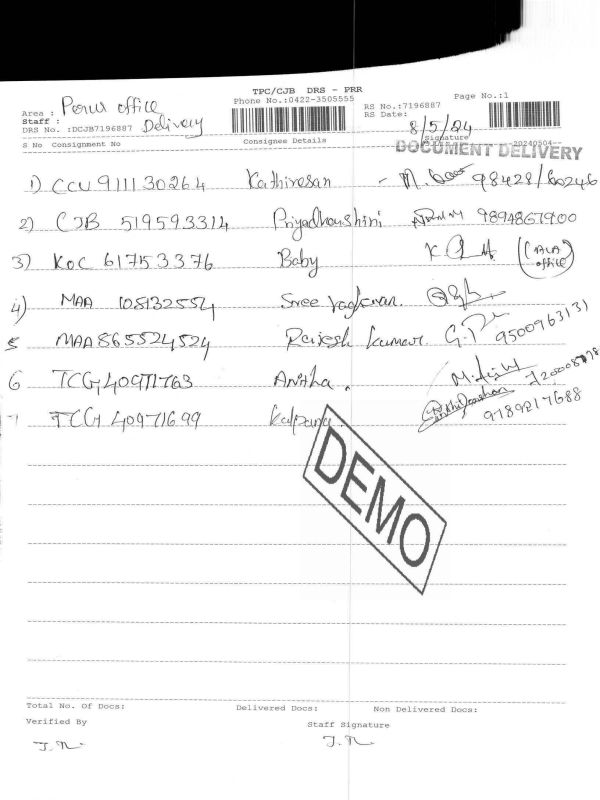 TPC/CJB DRS - PRR
Phone No.:0422-3505555
Page No.:1
Area : Porur office
RS No.:7196887
Staff :
RS Date: 8/5/24
DRS No. :DCJB7196887 Delivery
Signature
S No Consignment No Consignee Details 20240504--
DOCUMENT DELIVERY
1) CCU 911130264 Kathiresan 98428/60246
2) CJB 519593314 Priyadharshini 9894867900
3) KOC 617153376 Baby (ALA office)
4) MAA 108132554 Sree raghavan
5 MAA 865524524 Rajesh kumar 9500963131
6 TCG 40971763 Anitha.
7 TCG 40971699 Kalpana. 9789217688
DEMO
Total No. Of Docs: Delivered Docs: Non Delivered Docs:
Verified By Staff Signature
J.R. J.R.